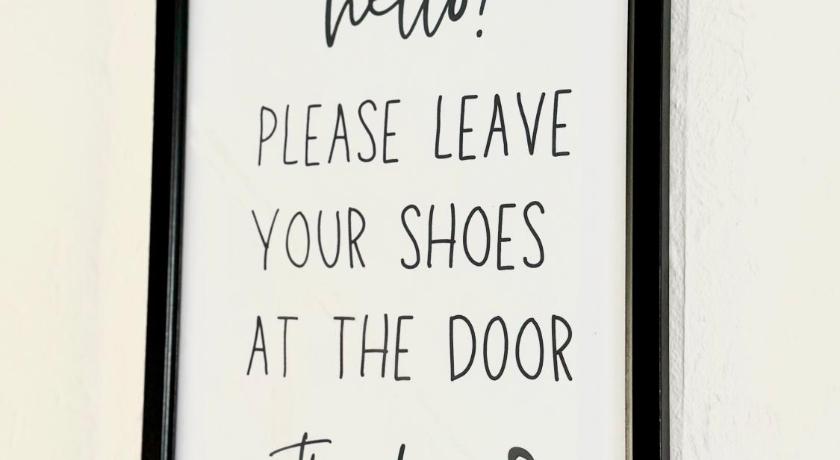 hello!
PLEASE LEAVE
YOUR SHOES
AT THE DOOR